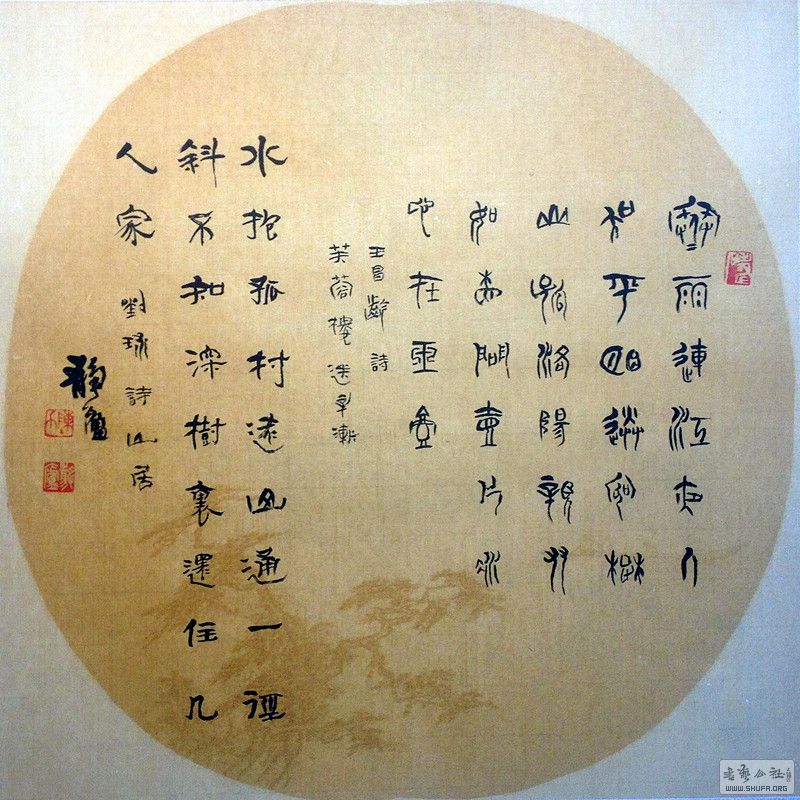 寒雨連江夜入
吳平明送客楚
山孤洛陽親友
如相問壹片冰
心在玉壺
王昌齡詩
芙蓉樓送辛漸
水抱孤村遠山通一徑
斜不知深樹裏還住几
人家 劉球詩山居
书艺公社
WWW.SHUFA.ORG